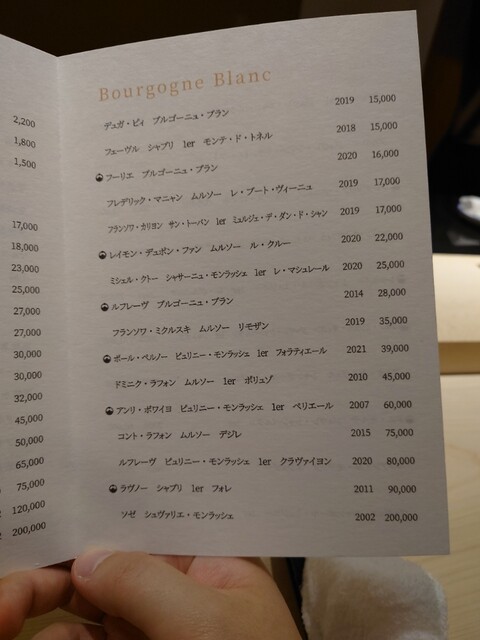 2,200
1,800
1,500
17,000
18,000
23,000
25,000
27,000
27,000
30,000
30,000
32,000
45,000
50,000
65,000
75,000
120,000
200,000
Bourgogne Blanc
デュガ・ピィ ブルゴーニュ・ブラン 2019 15,000
フェーヴル シャブリ 1er モンテ・ド・トネル 2018 15,000
フーリエ ブルゴーニュ・ブラン 2020 16,000
フレデリック・マニャン ムルソー レ・プート・ヴィーニュ 2019 17,000
フランソワ・カリヨン サン・トーバン 1er ミュルジェ・デ・ダン・ド・シャン 2019 17,000
レイモン・デュポン・ファン ムルソー ル・クルー 2020 22,000
ミシェル・クトー シャサーニュ・モンラッシェ 1er レ・マシュレール 2020 25,000
ルフレーヴ ブルゴーニュ・ブラン 2014 28,000
フランソワ・ミクルスキ ムルソー リモザン 2019 35,000
ポール・ペルノー ピュリニー・モンラッシェ 1er フォラティエール 2021 39,000
ドミニク・ラフォン ムルソー 1er ポリュゾ 2010 45,000
アンリ・ボワイヨ ピュリニー・モンラッシェ 1er ペリエール 2007 60,000
コント・ラフォン ムルソー デジレ 2015 75,000
ルフレーヴ ピュリニー・モンラッシェ 1er クラヴァイヨン 2020 80,000
ラヴノー シャブリ 1er フォレ 2011 90,000
ソゼ シュヴァリエ・モンラッシェ 2002 200,000